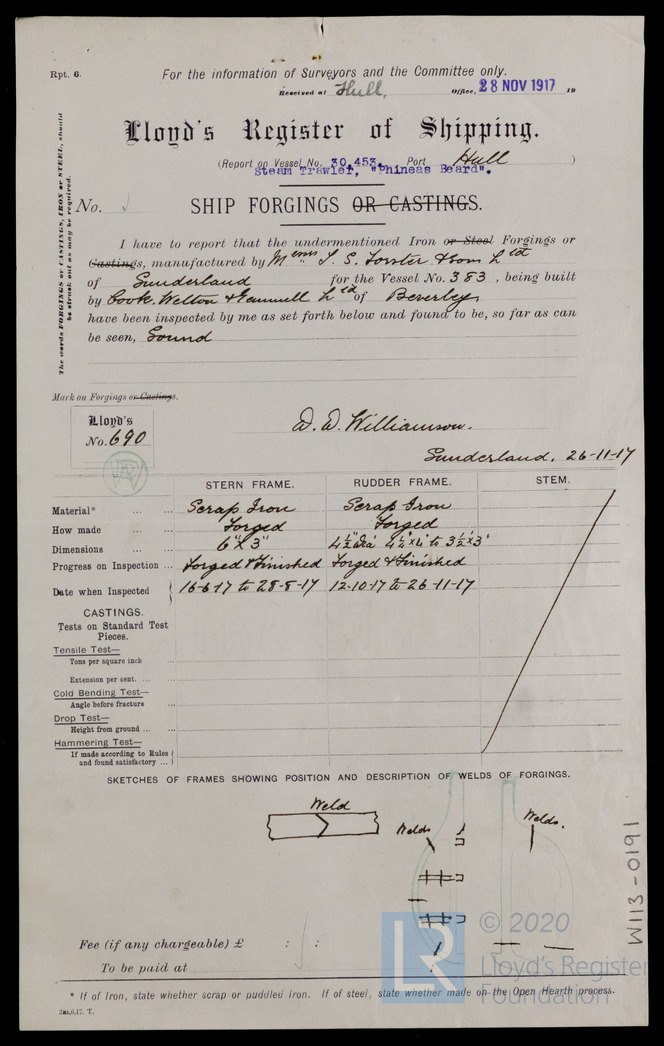 Rpt. 6.
For the information of Surveyors and the Committee only.
Received at Hull, Office, 28 NOV 1917 19
Lloyd's Register of Shipping.
(Report on Vessel No. 30,453, Port Hull )
Steam Trawler, "Phineas Beard".
No.
SHIP FORGINGS OR CASTINGS.
The words FORGINGS or CASTINGS, IRON or STEEL, should
be struck out as may be required.
I have to report that the undermentioned Iron or Steel Forgings or
Castings, manufactured by Messrs J. S. Forster & Sons Ltd
of Sunderland for the Vessel No. 383, being built
by Cook, Welton & Gemmell Ltd of Beverley
have been inspected by me as set forth below and found to be, so far as can
be seen, Sound
Mark on Forgings or Castings.
Lloyd's
No. 690
D. D. Williamson.
Sunderland, 26-11-17
STERN FRAME. RUDDER FRAME. STEM.
Material* ... ... Scrap Iron Scrap Iron
How made ... ... Forged Forged
Dimensions ... ... 6" x 3" 4½" dia 4¼" x 4" to 3½" x 3"
Progress on Inspection ... Forged & Finished Forged & Finished
Date when Inspected 16-6-17 to 28-8-17 12-10-17 to 26-11-17
CASTINGS.
Tests on Standard Test
Pieces.
Tensile Test—
Tons per square inch ...
Extension per cent. ... ...
Cold Bending Test—
Angle before fracture ...
Drop Test—
Height from ground ... ...
Hammering Test—
If made according to Rules
and found satisfactory ...
SKETCHES OF FRAMES SHOWING POSITION AND DESCRIPTION OF WELDS OF FORGINGS.
Weld
Welds
Welds.
W113-0191
Fee (if any chargeable) £ : :
To be paid at
© 2020
Lloyd's Register
Foundation
LR
* If of Iron, state whether scrap or puddled iron. If of steel, state whether made on the Open Hearth process.
2m,6,17. T.